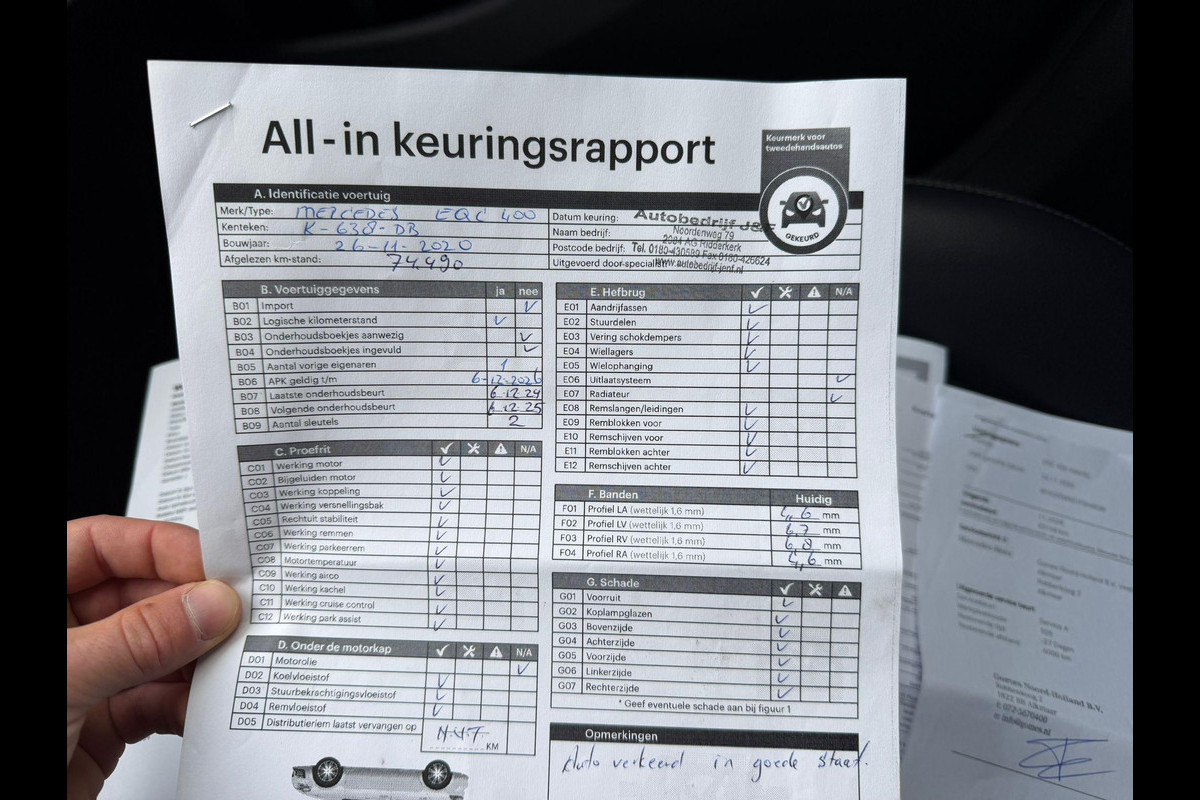 All-in keuringsrapport
Keurmerk voor
tweedehandsautos
GEKEURD
A. Identificatie voertuig
Merk/Type: MERCEDES EQC 400
Kenteken: K-638-DB
Bouwjaar: 26-11-2020
Afgelezen km-stand: 74.490
Datum keuring:
Naam bedrijf:
Postcode bedrijf:
Uitgevoerd door specialist:
Autobedrijf J&F
Noordenweg 79
2984 AG Ridderkerk
Tel. 0180-430589 Fax 0180-426624
www.autobedrijf-jenf.nl
B. Voertuiggegevens ja nee
B01 Import
B02 Logische kilometerstand
B03 Onderhoudsboekjes aanwezig
B04 Onderhoudsboekjes ingevuld
B05 Aantal vorige eigenaren 1
B06 APK geldig t/m 6-12-2026
B07 Laatste onderhoudsbeurt 6 12 24
B08 Volgende onderhoudsbeurt 6 12 25
B09 Aantal sleutels 2
C. Proefrit N/A
C01 Werking motor
C02 Bijgeluiden motor
C03 Werking koppeling
C04 Werking versnellingsbak
C05 Rechtuit stabiliteit
C06 Werking remmen
C07 Werking parkeerrem
C08 Motortemperatuur
C09 Werking airco
C10 Werking kachel
C11 Werking cruise control
C12 Werking park assist
D. Onder de motorkap N/A
D01 Motorolie
D02 Koelvloeistof
D03 Stuurbekrachtigingsvloeistof
D04 Remvloeistof
D05 Distributieriem laatst vervangen op N.V.T.
KM
E. Hefbrug N/A
E01 Aandrijfassen
E02 Stuurdelen
E03 Vering schokdempers
E04 Wiellagers
E05 Wielophanging
E06 Uitlaatsysteem
E07 Radiateur
E08 Remslangen/leidingen
E09 Remblokken voor
E10 Remschijven voor
E11 Remblokken achter
E12 Remschijven achter
F. Banden Huidig
F01 Profiel LA (wettelijk 1,6 mm) 4,6 mm
F02 Profiel LV (wettelijk 1,6 mm) 6,7 mm
F03 Profiel RV (wettelijk 1,6 mm) 6,8 mm
F04 Profiel RA (wettelijk 1,6 mm) 4,6 mm
G. Schade
G01 Voorruit
G02 Koplampglazen
G03 Bovenzijde
G04 Achterzijde
G05 Voorzijde
G06 Linkerzijde
G07 Rechterzijde
* Geef eventuele schade aan bij figuur 1
Opmerkingen
Auto verkeerd in goede staat.